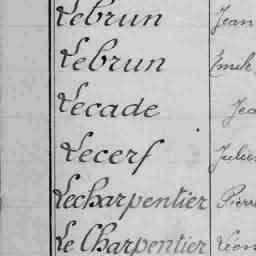 Lebrun Jean
Lebrun Emile
Lecade
Lecerf Julien
Lecharpentier Pierre
Le Charpentier Léon